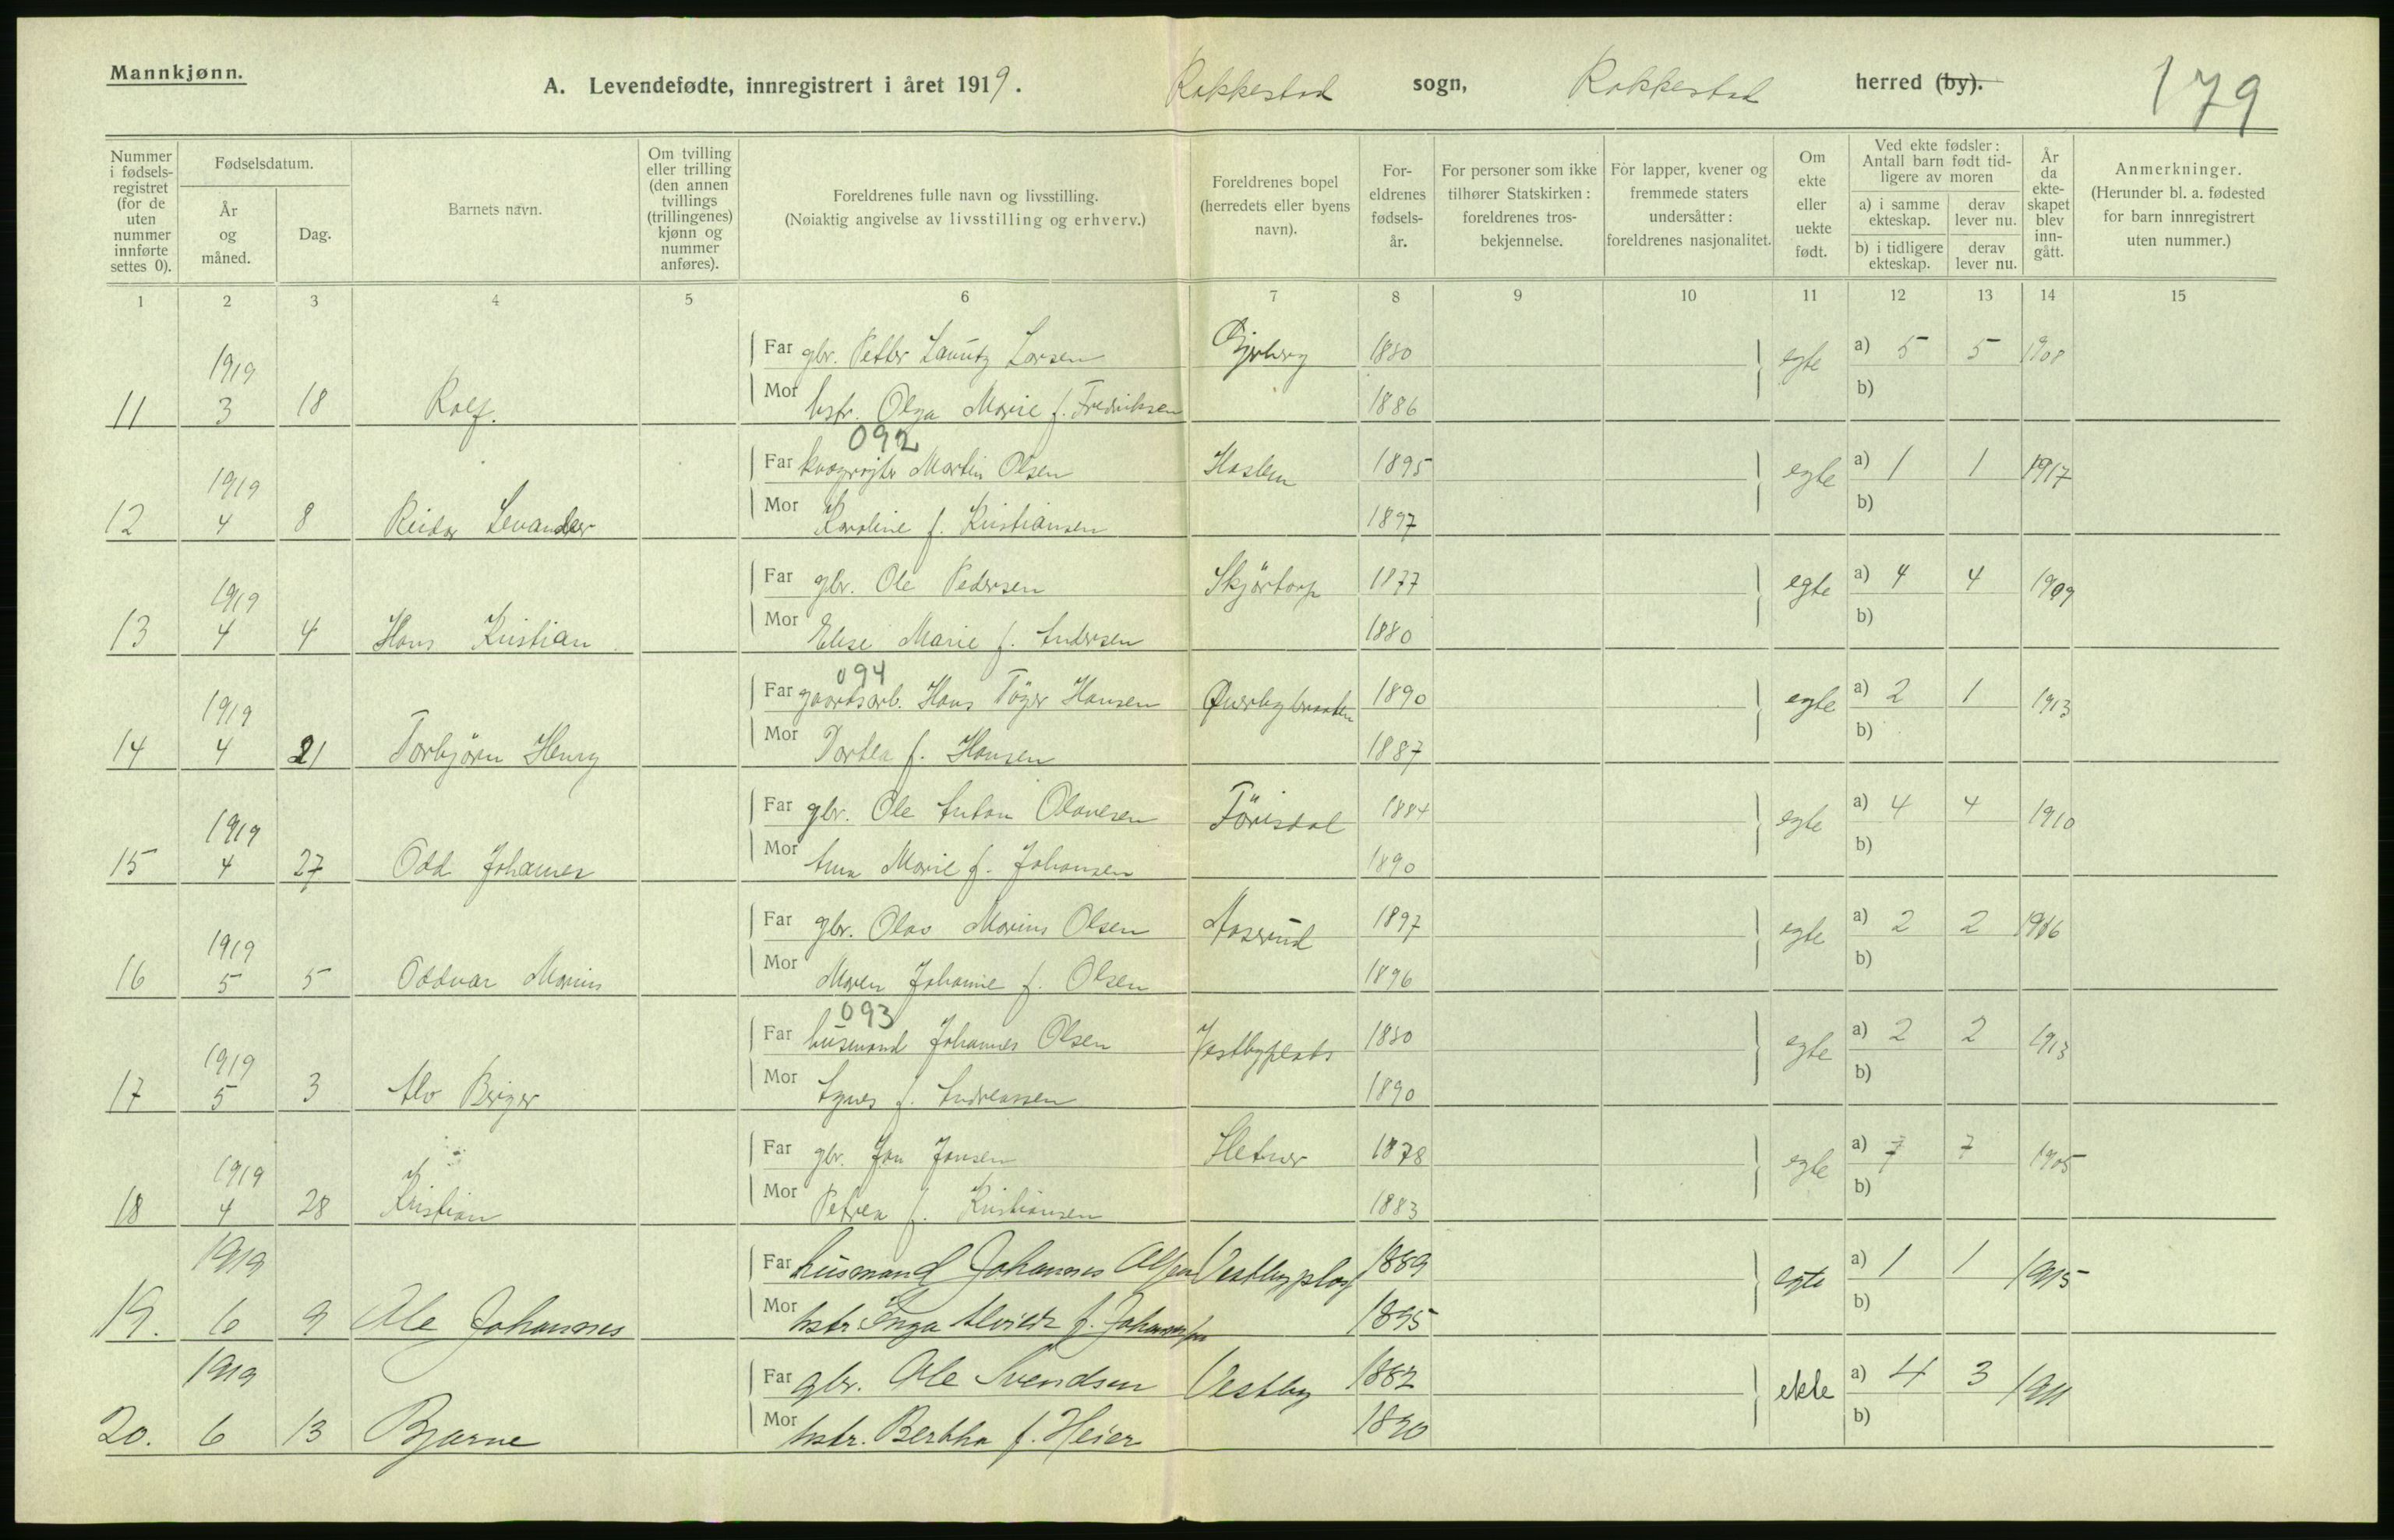 Mannkjønn.
A. Levendefødte, innregistrert i året 1919. Rakkestad sogn, Rakkestad herred (by). 179
Nummer i fødselsregistret (for de uten nummer innførte settes 0).
Fødselsdatum.
År og måned.
Dag.
Barnets navn.
Om tvilling eller trilling (den annen tvillings (trillingenes) kjønn og nummer anføres).
Foreldrenes fulle navn og livsstilling.
(Nøiaktig angivelse av livsstilling og erhverv.)
Foreldrenes bopel (herredets eller byens navn).
Foreldrenes fødselsår.
For personer som ikke tilhører Statskirken: foreldrenes trosbekjennelse.
For lapper, kvener og fremmede staters undersåtter: foreldrenes nasjonalitet.
Om ekte eller uekte født.
Ved ekte fødsler: Antall barn født tidligere av moren
a) i samme ekteskap. derav lever nu.
b) i tidligere ekteskap. derav lever nu.
År da ekteskapet blev inngått.
Anmerkninger.
(Herunder bl. a. fødested for barn innregistrert uten nummer.)
1 2 3 4 5 6 7 8 9 10 11 12 13 14 15
1919 Far gbr. Petter Lauritz Larsen 1880 egte a) 5 5 1908
11 3 18 Rolf. Mor hstr. Olga Marie f. Fredriksen 1886 b)
092
1919 Far Martin Olsen Haslem 1895 egte a) 1 1 1917
12 4 8 Reidar Levander Mor Karoline f. Kristiansen 1897 b)
1919 Far gbr. Ole Pedersen Skjörtorp 1877 egte a) 4 4 1909
13 4 4 Hans Kristian Mor Elise Marie f. Andersen 1880 b)
094
1919 Far gaardsarb. Hans Töger Hansen Øverbybraaten 1890 egte a) 2 1 1913
14 4 21 Torbjörn Henry Mor Dortea f. Hansen 1887 b)
1919 Far gbr. Ole Anton Olavesen Förisdal 1884 egte a) 4 4 1910
15 4 27 Odd Johannes Mor Anna Marie f. Johansen 1890 b)
1919 Far gbr. Olav Marius Olsen Aaserud 1897 egte a) 2 2 1916
16 5 5 Oddvar Marius Mor Maren Johanne f. Olsen 1896 b)
093
1919 Far husmand Johannes Olsen Vestbyplads 1880 egte a) 2 2 1913
17 5 3 Alv Birger Mor Agnes f. Andreassen 1890 b)
1919 Far gbr. Jon Jonsen 1878 egte a) 7 7 1905
18 4 28 Kristian Mor Petrea f. Kristiansen 1883 b)
1919 Far husmand Johannes Olsen Vestbyplads 1889 egte a) 1 1 1915
19. 6 9 Ole Johannes Mor hstr Inga f. Johannsen 1895 b)
1919 Far gbr. Ole Svendsen Vestby 1882 ekte a) 4 3 1911
20. 6 13 Bjarne Mor hstr. Bertha f. Heier 1890 b)